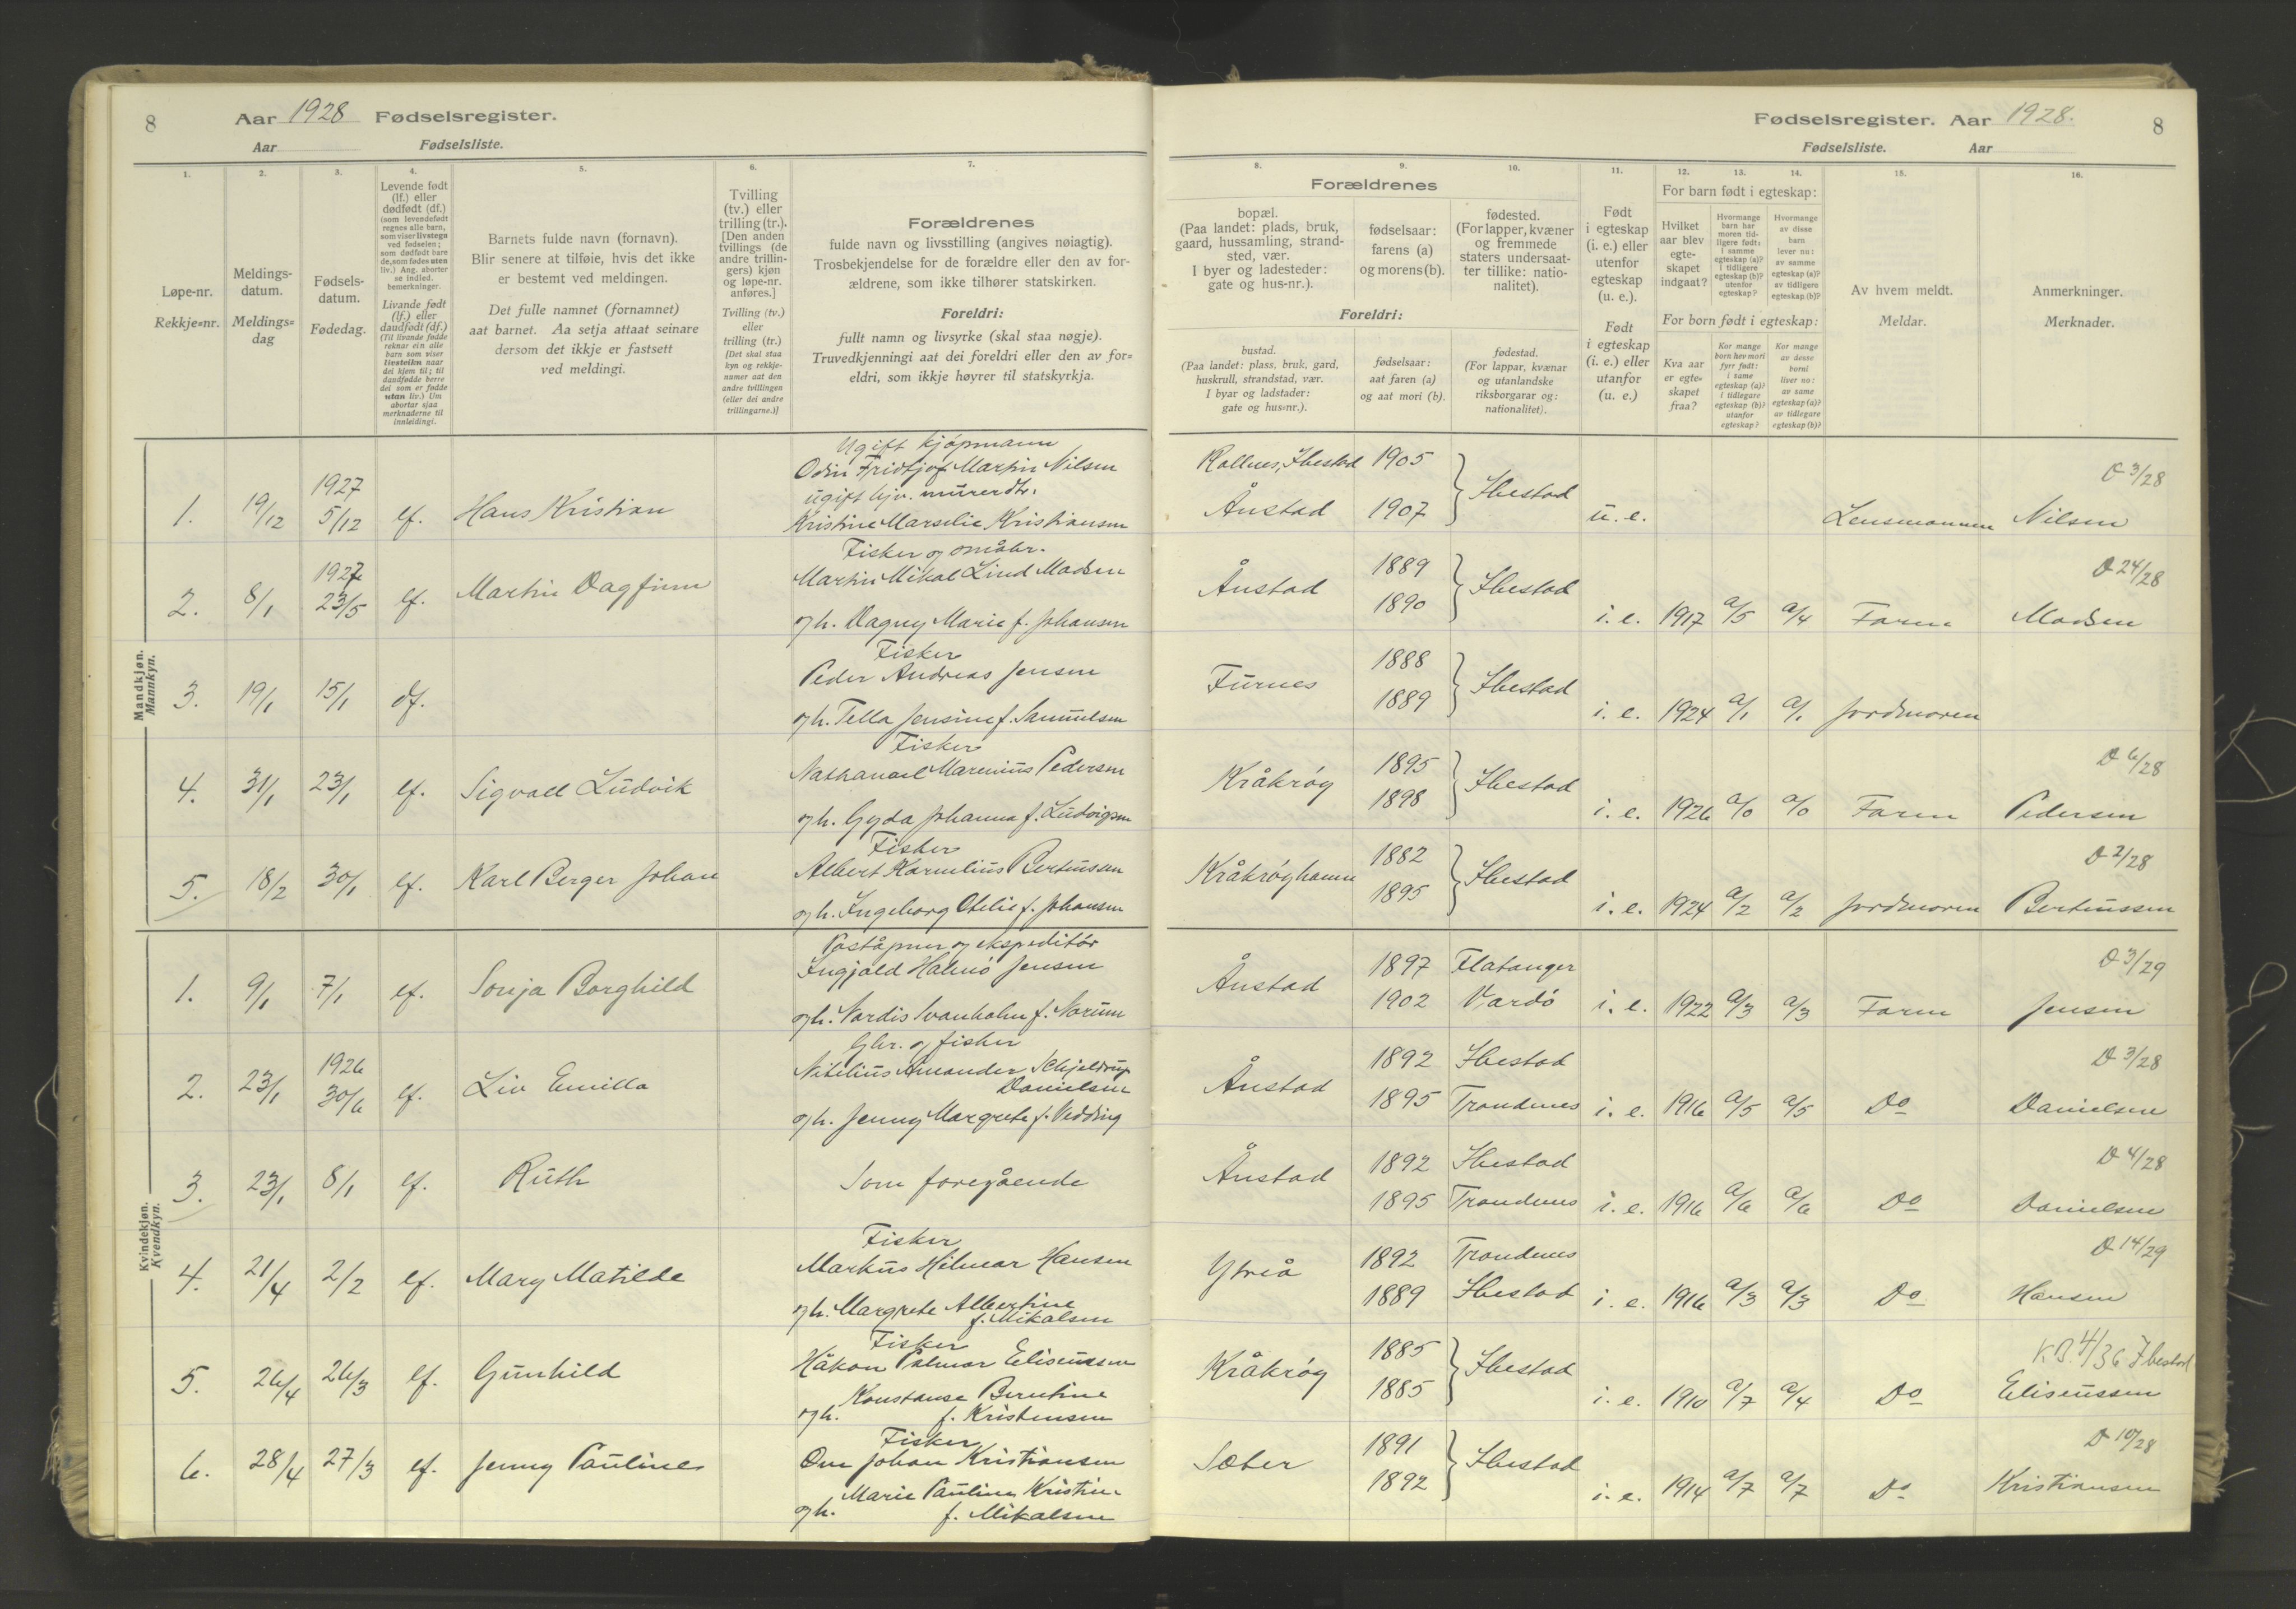 8
Aar 1928 Fødselsregister.
Aar
Fødselsliste.
1.
2.
3.
4.
5.
6.
7.
Løpe-nr.
Rekkje=nr.
Meldings-
datum.
Meldings=
dag
Fødsels-
datum.
Fødedag.
Levende født
(lf.) eller
dødfødt (df.)
(som levendefødt
regnes alle barn,
som viser livstegn
ved fødselen;
som dødfødt bare
de, som fødes uten
liv.) Ang. aborter
se indled.
bemerkninger.
Livande født
(lf.) eller
daudfødt (df.)
(Til livande fødde
reknar ein alle
barn som viser
livsteikn naar
dei kjem til; til
daudfødde berre
dei som er fødde
utan liv.) Um
abortar sjaa
merknaderne til
innleidingi.
Barnets fulde navn (fornavn).
Blir senere at tilføie, hvis det ikke
er bestemt ved meldingen.
Det fulle namnet (fornamnet)
aat barnet. Aa setja attaat seinare
dersom det ikkje er fastsett
ved meldingi.
Tvilling
(tv.) eller
trilling (tr.).
[Den anden
tvillings (de
andre trillin-
gers) kjøn
og løpe-nr.
anføres.]
Tvilling (tv.)
eller
trilling (tr.)
[Det skal staa
kyn og rekkje-
numer aat den
andre tvillingen
(eller dei andre
trillingarne.)]
Forældrenes
fulde navn og livsstilling (angives nøiagtig).
Trosbekjendelse for de forældre eller den av for-
ældrene, som ikke tilhører statskirken.
Foreldri:
fullt namn og livsyrke (skal staa nøgje).
Truvedkjenningi aat dei foreldri eller den av for=
eldri, som ikkje høyrer til statskyrkja.
Mandkjøn.
Mannkyn.
Ugift kjøpmann
1. 19/12 1927 5/12 lf. Hans Kristian
Odin Fridtjof Martin Nilsen
ugift hjv. murerdtr.
Kristine Marselie Kristiansen
Fisker og småbr.
2. 8/1 1927 23/5 lf. Martin Dagfinn
Martin Mikal Lind Madsen
og h. Dagny Marie f. Johansen
Fisker
3. 19/1 15/1 df.
Peder Andreas Jensen
og h. Tella Jensine f. Samuelsen
Fisker
4. 31/1 23/1 lf. Sigvall Ludvik
Nathanael Marenius Pedersen
og h. Gyda Johanna f. Ludvigsen
Fisker
5. 18/2 30/1 lf. Karl Berger Johan
Albert Kornelius Berteussen
og h. Ingeborg Otelie f. Johansen
Kvindekjøn.
Kvendkyn.
Poståpner og ekspeditør
1. 9/1 7/1 lf. Sonja Borghild
Ingjald Halmø Jensen
og h. Nordis Svanholm f. Norum
Gbr. og fisker
2. 23/1 1926 30/6 lf. Liv Emilla
Nikelius Amandur Schjeldrup
Danielsen
og h. Jenny Margrete f. Vedding
3. 23/1 8/1 lf. Ruth
Som foregående
Fisker
4. 21/4 2/2 lf. Mary Matilde
Markus Hilmar Hansen
og h. Margrete Albertine
f. Mikalsen
Fisker
5. 26/4 26/3 lf. Gunhild
Håkon Palmar Eliseussen
Konstanse Berntine
og h. f. Kristensen
Fisker
6. 28/4 27/3 lf. Jenny Pauline
Ove Johan Kristiansen
Marie Pauline Kristine
og h. f. Mikalsen
Fødselsregister. Aar 1928.
8
Fødselsliste.
Aar
8.
9.
10.
11.
12.
13.
14.
15.
16.
Forældrenes
bopæl.
(Paa landet: plads, bruk,
gaard, hussamling, strand-
sted, vær.
I byer og ladesteder:
gate og hus-nr.).
fødselsaar:
farens (a)
og morens (b).
fødested.
(For lapper, kvæner
og fremmede
staters undersaat-
ter tillike: natio-
nalitet).
Foreldri:
bustad.
(Paa landet: plass, bruk, gard,
huskrull, strandstad, vær.
I byar og ladstader:
gate og hus=nr.).
fødselsaar:
aat faren (a)
og aat mori (b).
fødestad.
(For lappar, kvænar
og utanlandske
riksborgarar og:
nationalitet).
Født
i egteskap
(i. e.) eller
utenfor
egteskap
(u. e.).
Født
i egteskap
(i. e.) eller
utanfor
(u. e.)
For barn født i egteskap:
Hvilket
aar blev
egte-
skapet
indgaat?
Hvormange
barn har
moren tid-
ligere født:
i samme
egteskap (a)?
i tidligere
egteskap (b)?
utenfor
egteskap?
Hvormange
av disse
barn
lever nu:
av samme
egteskap (a)?
av tidligere
egteskap (b)?
For born født i egteskap:
Kva aar
er egte=
skapet
fraa?
Kor mange
born hev mori
fyrr født:
i same
egteskap (a)?
i tidlegare
egteskap (b)?
utanfor
egteskap?
Kor mange
av desse
borni
liver no:
av same
egteskap (a)?
av tidlegare
egteskap (b)?
Av hvem meldt.
Meldar.
Anmerkninger.
Merknader.
Rollnes, Ibestad 1905 D 3/28
Ånstad 1907 Ibestad u. e. Lensmannen Nilsen
1889 D 24/28
Ånstad 1890 Ibestad i. e. 1917 a/5 a/4 Faren Madsen
1888
Furnes 1889 Ibestad i. e. 1924 a/1 a/1 Jordmoren
1895 D 6/28
Kråkrøg 1898 Ibestad i. e. 1926 a/0 a/0 Faren Pedersen
1882 D 2/28
Kråkrøghamn 1895 Ibestad i. e. 1924 a/2 a/2 Jordmoren Berteussen
1897 Flatanger D 3/29
Ånstad 1902 Vardø i. e. 1922 a/3 a/3 Faren Jensen
1892 Ibestad D 3/28
Ånstad 1895 Trondenes i. e. 1916 a/5 a/5 Do Danielsen
1892 Ibestad D 4/28
Ånstad 1895 Trondenes i. e. 1916 a/6 a/6 Do Danielsen
1892 Trondenes D 14/29
Ytreå 1889 Ibestad i. e. 1916 a/3 a/3 Do Hansen
1885 K.B. 4/36 Ibestad
Kråkrøg 1885 Ibestad i. e. 1910 a/7 a/4 Do Eliseussen
1891 D 10/28
Sæter 1892 Ibestad i. e. 1914 a/7 a/7 Do Kristiansen